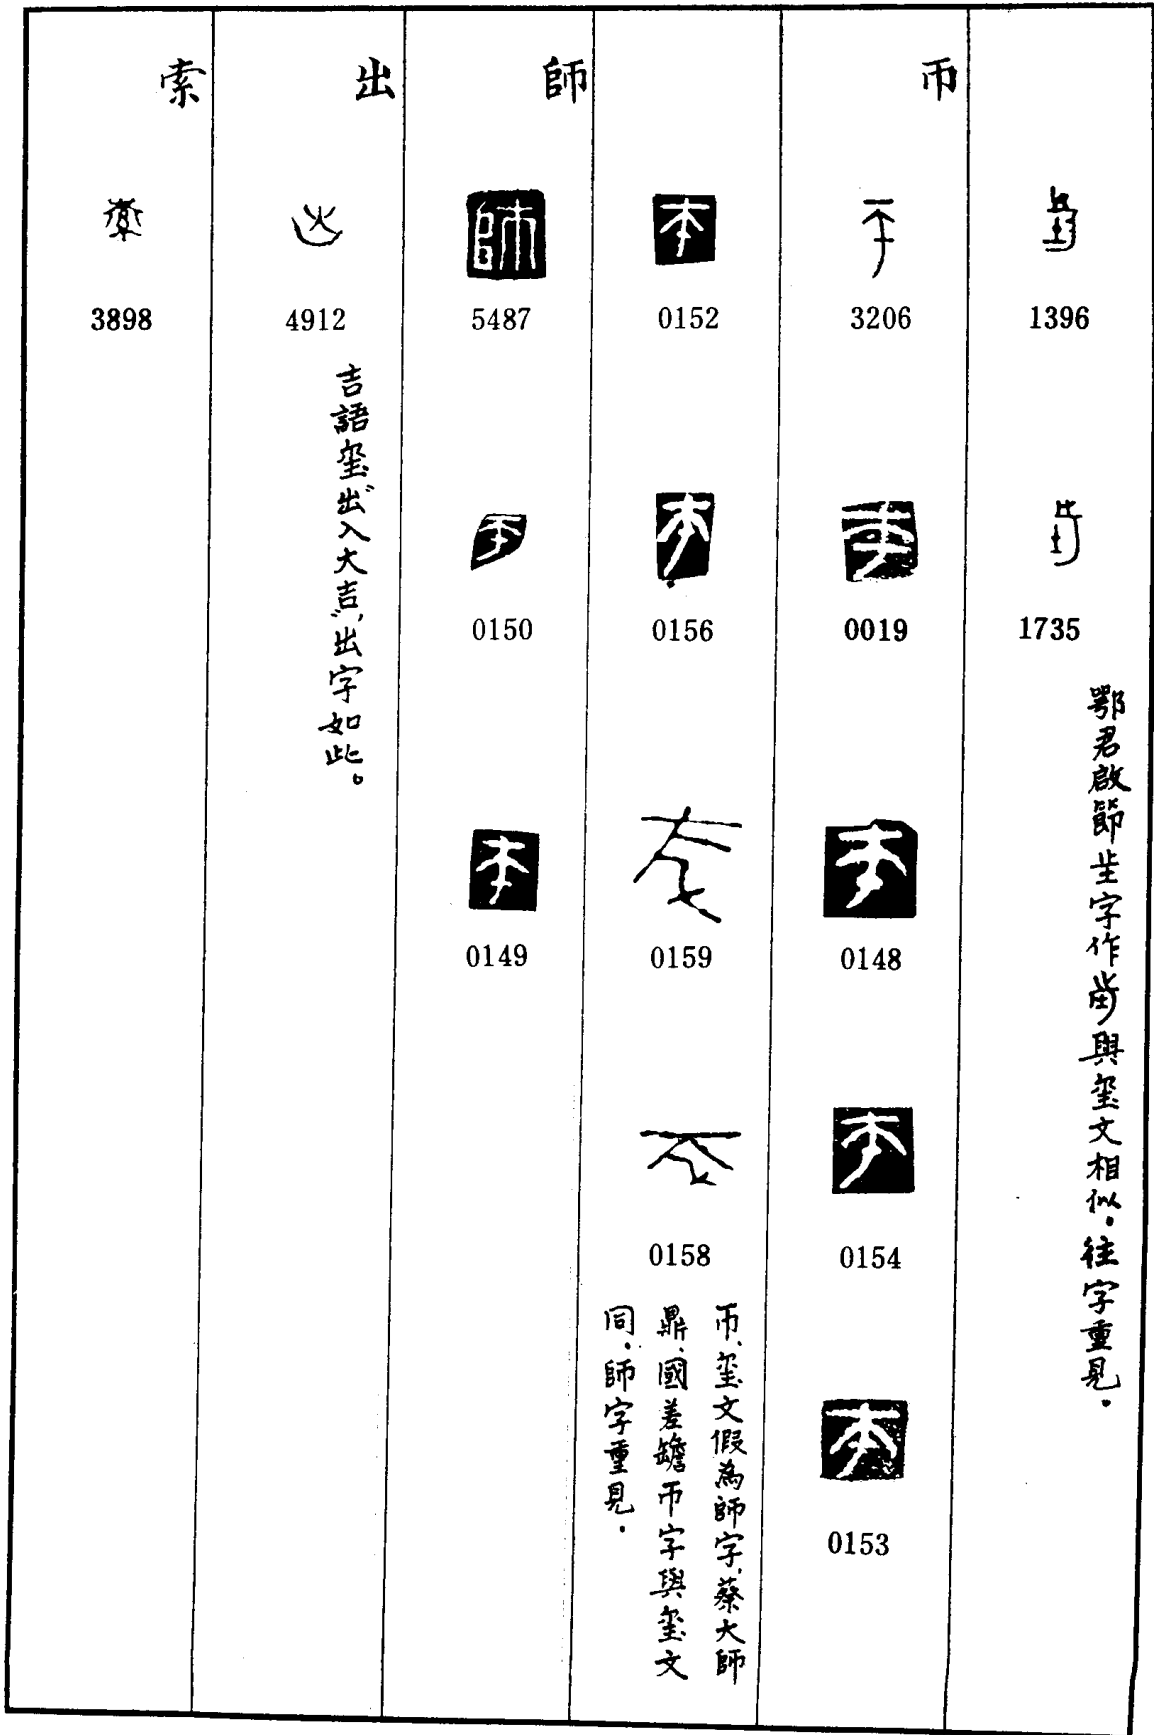 1396
1735
鄂君啟節㞷字作
與璽文相似。往字重見。
帀
3206
0019
0148
0154
0153
0152
0156
0159
0158
帀、璽文假為師字、蔡大師
鼎、國差𦉜帀字與璽文
同。師字重見。
師
5487
0150
0149
出
4912
吉語璽"出入大吉",出字如此。
索
3898